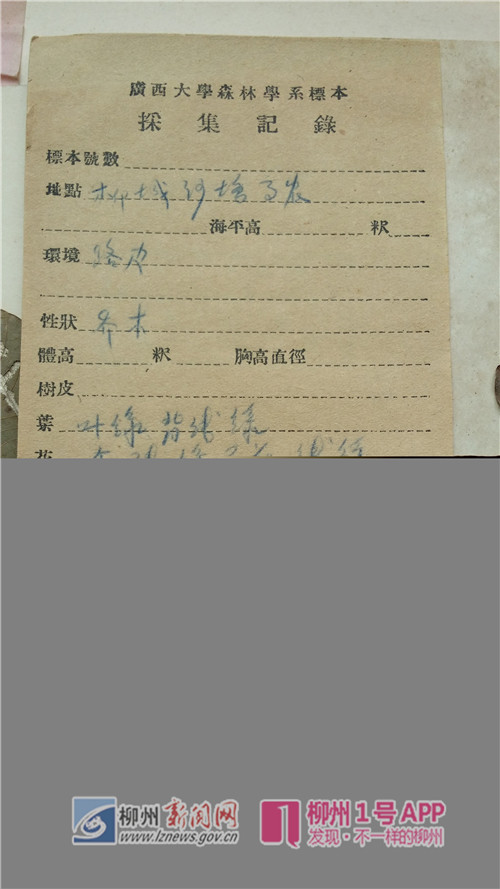 廣西大學森林學系標本
採集記錄
標本號數
地點 柳城沙塘西農
海平高 釈
環境 路边
性狀 乔木
體高 釈 胸高直徑
樹皮
葉 叶緑 背淺緑
花
柳州新闻网 柳州1号APP
www.lznews.gov.cn 发现·不一样的柳州